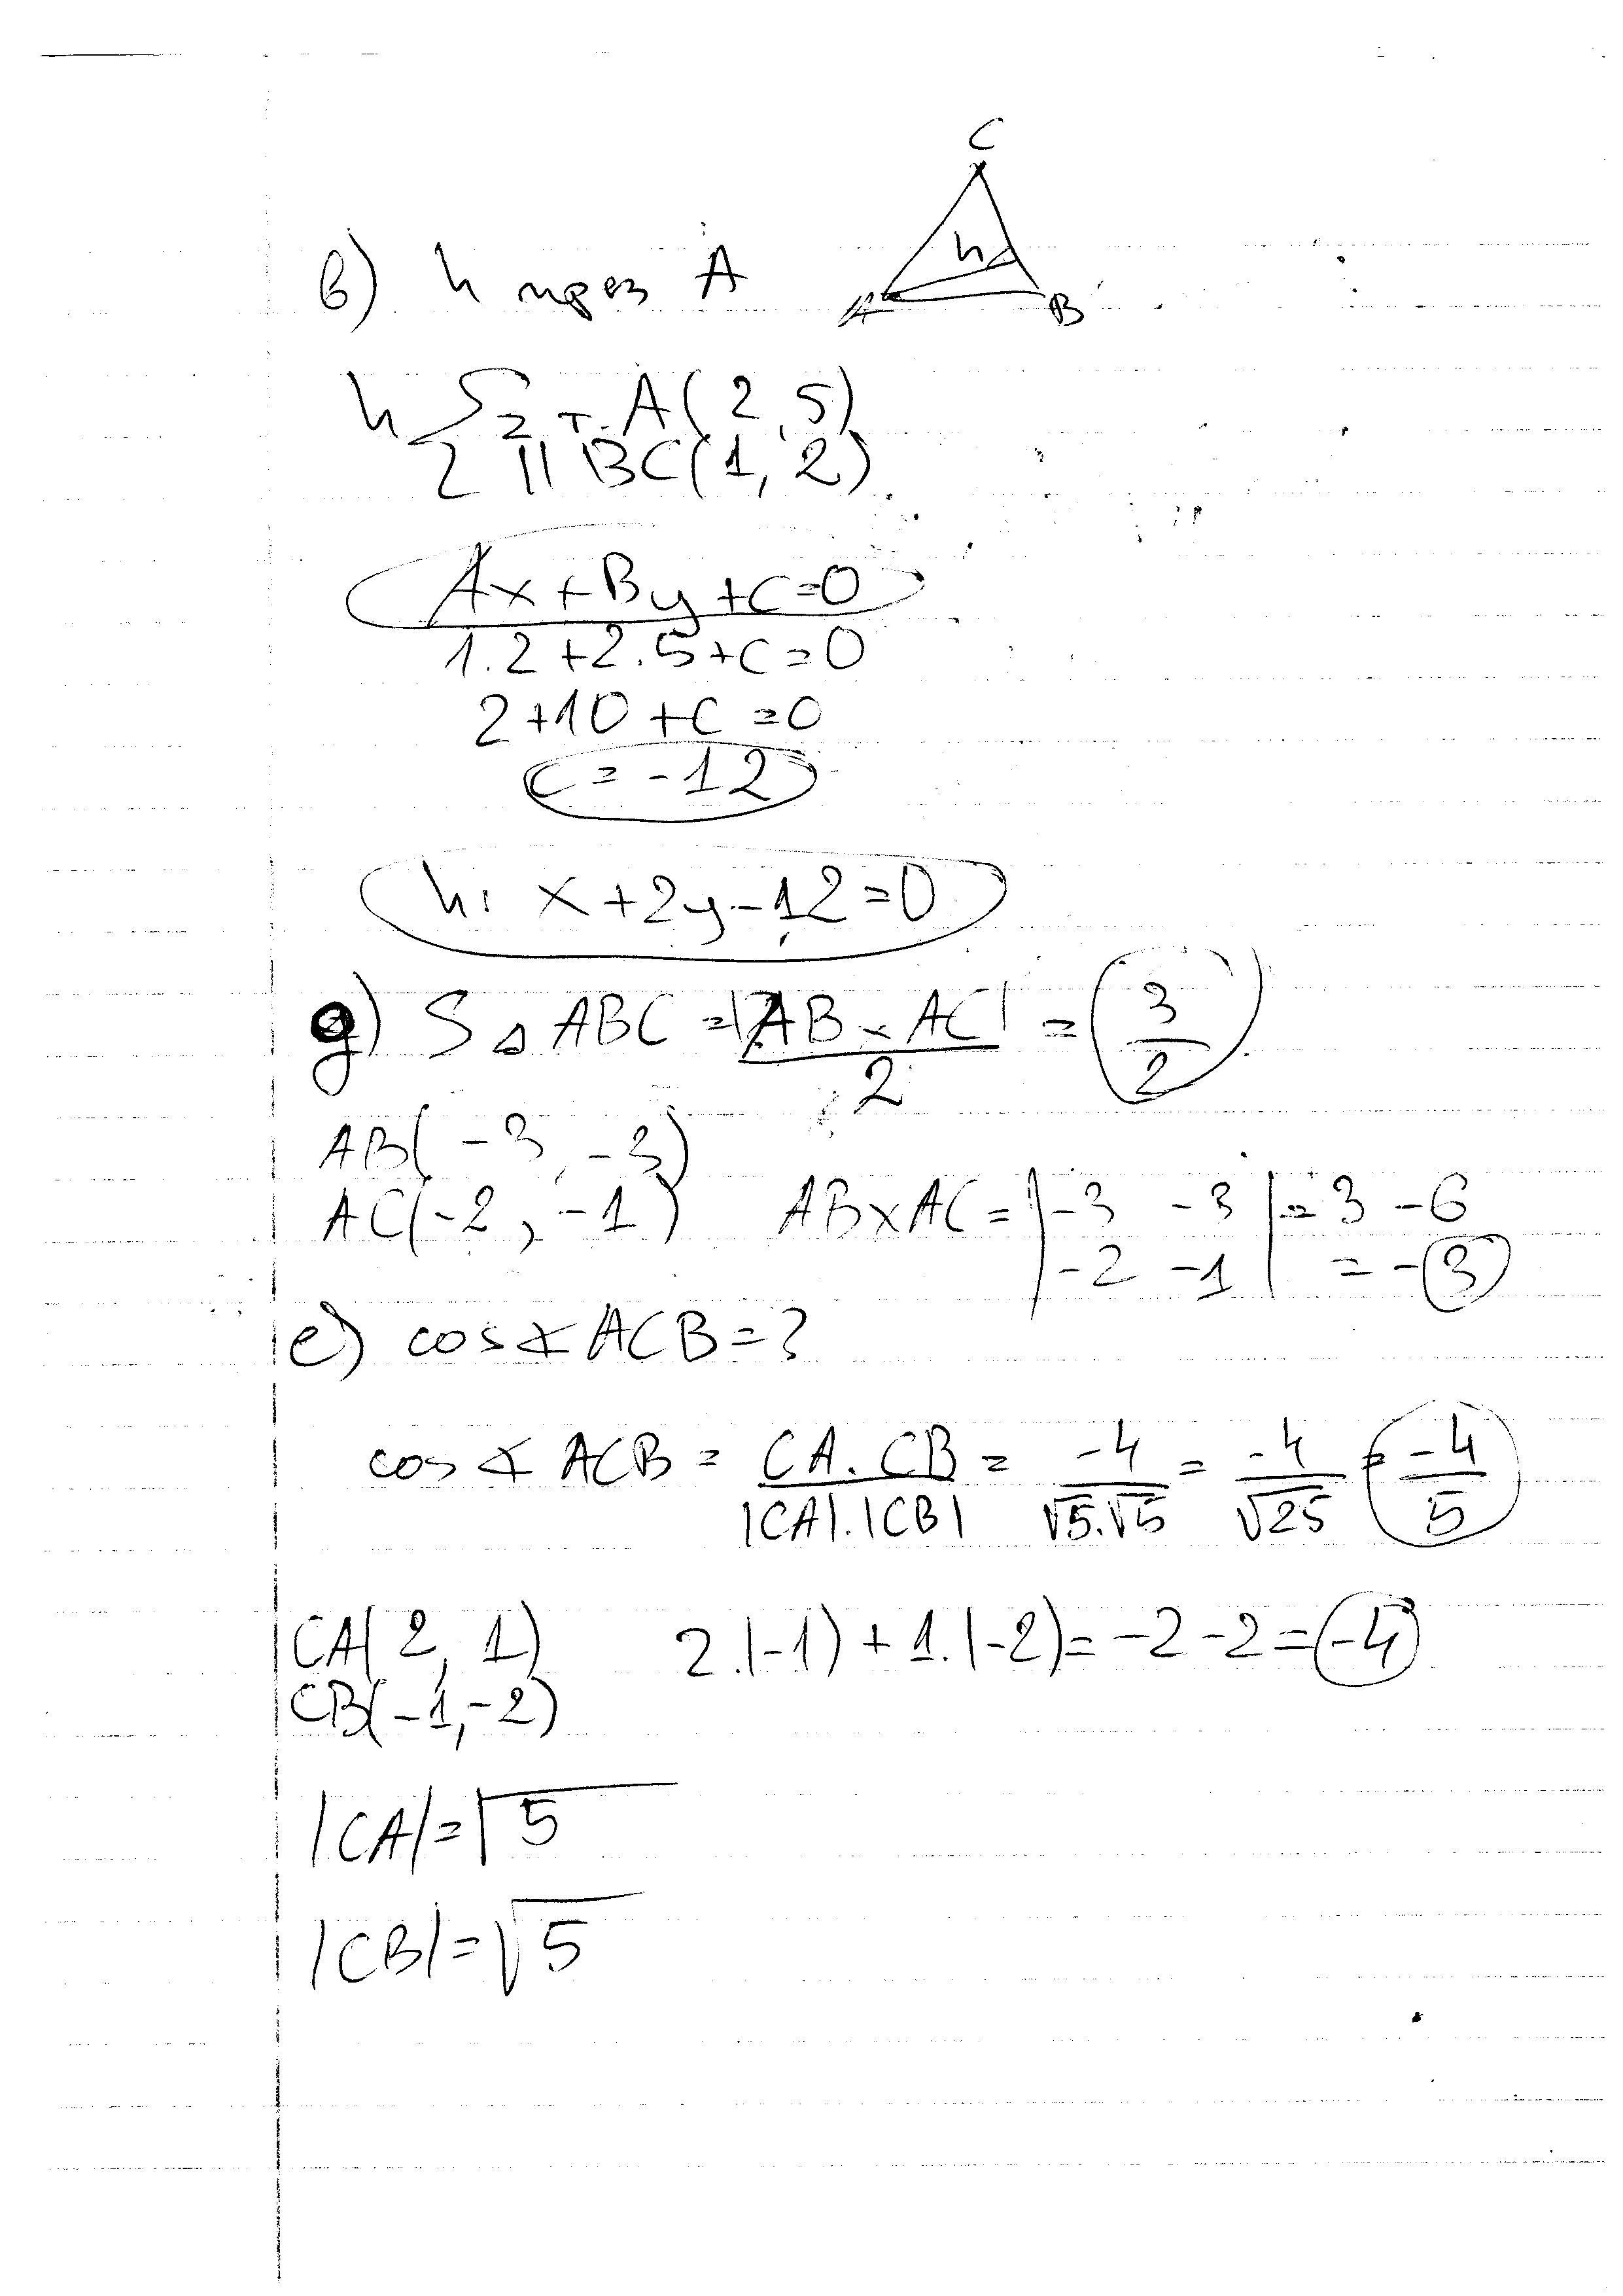 C
h
A
B
в) h през A
h { z т. A(2,5)
{ || BC(1,2)
Ax+By+C=0
1.2+2.5+C=0
2+10+C=0
C=-12
h: x+2y-12=0
g) S△ABC = |AB×AC| / 2 = 3/2
AB(-3,-3)
AC(-2,-1) AB×AC = |-3 -3| = 3-6
|-2 -1| = -3
е) cos∢ACB=?
cos∢ACB = CA.CB / |CA|.|CB| = -4/√5.√5 = -4/√25 = -4/5
CA(2,1) 2.(-1)+1.(-2)=-2-2=-4
CB(-1,-2)
|CA|=√5
|CB|=√5